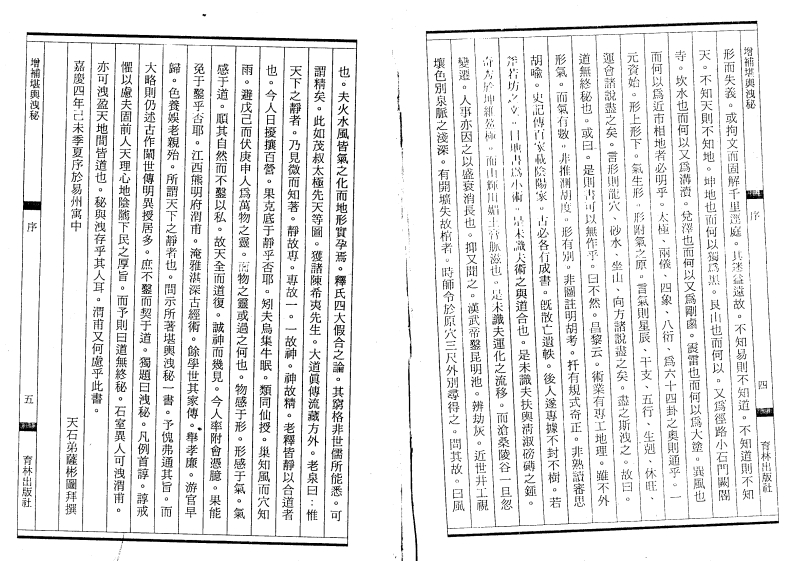 增補堪輿洩秘
序
四
育林出版社
形而失義。或拘文而固解千里逕庭。其迷益遠故。不知易則不知道。不知道則不知
天。不知天則不知地。坤地也而何以獨爲黑。艮山也而何以。又爲徑路小石門闕閽
寺。坎水也而何以又爲溝瀆。兌澤也而何以又爲剛鹵。震雷也而何以爲大塗。巽風也
而何以爲近市相地者必明乎。太極、兩儀、四象、八衍、爲六十四卦之奧則通乎。一
元資始。形上形下。氣生形。形附氣之原。言氣則星辰、干支、五行、生剋、休旺、
運會諸說盡之矣。言形則龍穴、砂水、坐山、向方諸說盡之矣。盡之斯洩之。故曰。
道無終秘也。或曰。是則書可以無作乎。曰不然。昌黎云。術業有專工地理。雖不外
形氣。而氣有數。非推測胡度。形有別。非圖註明胡考。扦有規式奇正。非熟讀審思
胡喩。史記傳百家載陰陽家。古必各有成書。旣散亡遺軼。後人遂專據不封不樹。若
斧若坊之文。目地書爲小術。是未識大術之與道合也。是未識夫扶輿淸淑磅礴之鍾。
奇秀於坤維岳極。而山輝川媚土帝脈滋也。是未識夫運化之流移。而滄桑陵谷一旦忽
變遷。人事亦因之以盛衰消長也。抑又聞之。漢武帝鑿昆明池。辨劫灰。近世井工視
壤色別泉脈之淺深。有開壙失故棺者。時師令於原穴三尺外別尋得之。問其故。曰風
也。夫火水風皆氣之化而地形實孕焉。釋氏四大假合之論。其窮格非世儒所能悉。可
謂精矣。此如茂叔太極先天等圖。獲諸陳希夷先生。大道眞傳流藏方外。老泉曰：惟
天下之靜者。乃見微而知著。靜故專。專故一。一故神。神故精。老釋皆靜以合道者
也。今人日擾攘百營。果克底于靜乎否耶。矧夫烏集牛眠。類同仙授。巢知風而穴知
雨。避戊己而伏庚申人爲萬物之靈。而物之靈或過之何也。物感于形。形感于氣。氣
感于道。順其自然而不鑿以私。故天全而道復。誠神而幾見。今人率附會憑臆。果能
免于鑿乎否耶。江西熊明府渭甫。淹雅湛深古經術。餘學世其家傳。舉孝廉。游官早
歸。色養娛老親殆。所謂天下之靜者也。問示所著堪輿洩秘一書。予愧弗通其旨。而
大略則仍述古作闡世傳明異授居多。庶不鑿而契于道。獨題曰洩秘。凡例首諄。諄戒
懼以慮夫固前人天理心地陰隲下民之厚旨。而予則曰道無終秘。石室異人可洩渭甫。
亦可洩盈天地間皆道也。秘與洩存乎其人耳。渭甫又何慮乎此書。
嘉慶四年己未季夏序於易州寓中
天石弟薩彬圖拜撰
增補堪輿洩秘
序
五
育林出版社